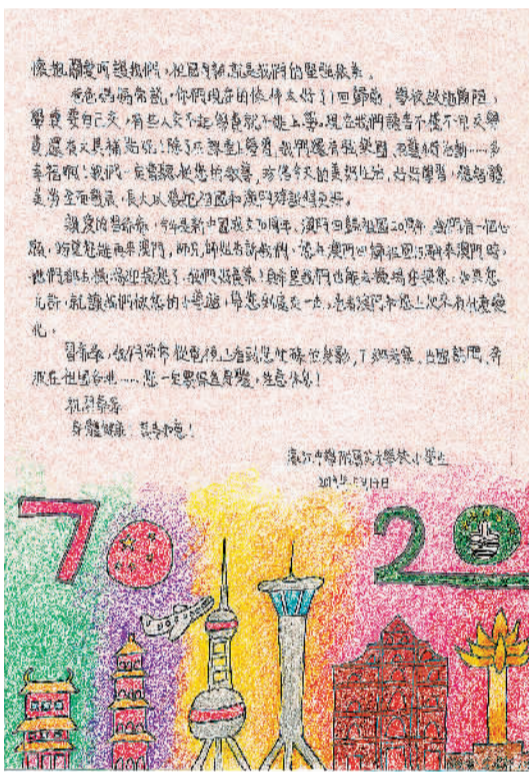 懷抱關愛呵護我們,祖國母親就是我們的堅強後盾。
爸爸媽媽常說,你們現在的條件太好了!回歸前,學校設施簡陋,
學費要自己交,有些人交不起學費就不能上學。現在我們讀書不僅不用交學
費,還有文具補貼呢!除了在課堂上學習,我們還有弦樂團、
幸福啊!我們一定會聽習爺爺的教導,珍惜今天的美好生活,好好學習,德智體
美勞全面發展,長大以後把祖國和澳門建設得更好。
親愛的習爺爺,今年是新中國成立70周年、澳門回歸祖國20周年,我們有一個心
願,盼望您能再來澳門,師兄師姐告訴我們,您在澳門回歸祖國15周年來澳門時,
他們都去機場迎接您了,我們好羨慕!
允許,就讓我們做您的小導遊,帶您到處走一走,看看澳門和您上次來有什麼變
化。
習爺爺,我們常常從電視上看到您忙碌的身影,
波在祖國各地……您一定要保重身體,注意休息!
祝習爺爺
身體健康、萬事如意!
濠江中學附屬英才學校小學生
2019年5月19日
70 20